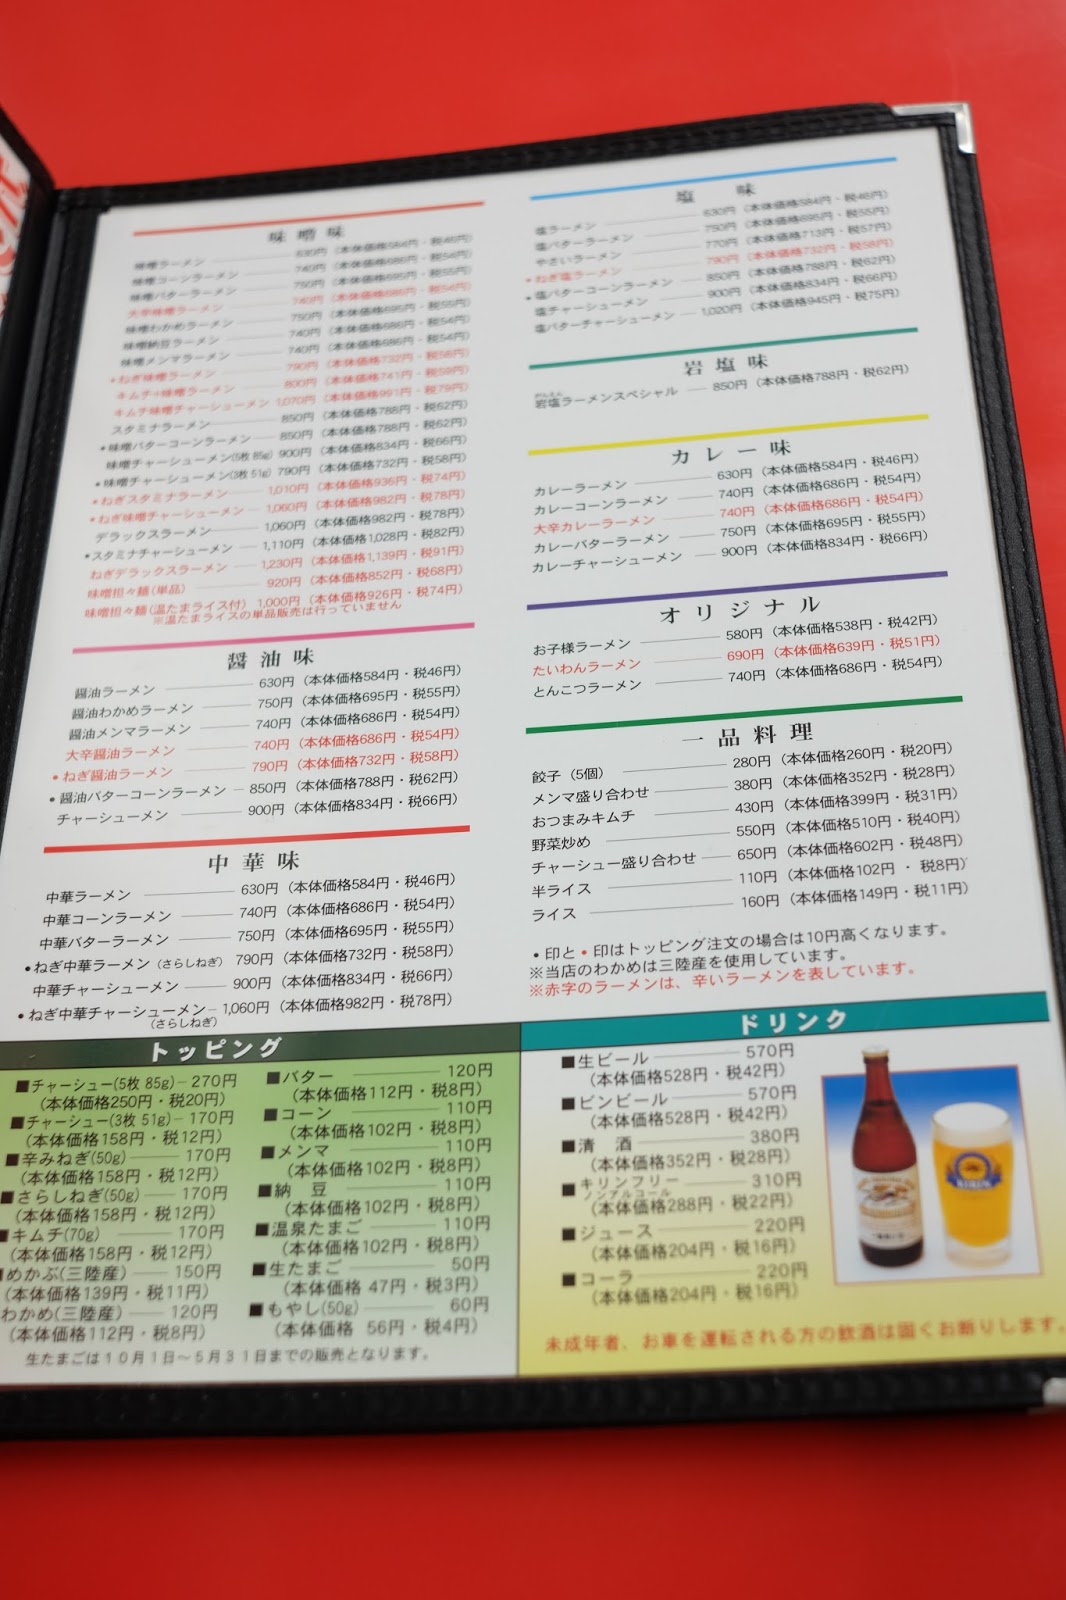 味噌味
味噌ラーメン 630円（本体価格584円・税46円）
味噌コーンラーメン 740円（本体価格686円・税54円）
味噌バターラーメン 750円（本体価格695円・税55円）
大辛味噌ラーメン 740円（本体価格686円・税54円）
味噌わかめラーメン 750円（本体価格695円・税55円）
味噌納豆ラーメン 740円（本体価格686円・税54円）
味噌メンマラーメン 740円（本体価格686円・税54円）
•ねぎ味噌ラーメン 790円（本体価格732円・税58円）
キムチ味噌ラーメン 800円（本体価格741円・税59円）
キムチ味噌チャーシューメン 1,070円（本体価格991円・税79円）
スタミナラーメン 850円（本体価格788円・税62円）
•味噌バターコーンラーメン 850円（本体価格788円・税62円）
味噌チャーシューメン(5枚 85g) 900円（本体価格834円・税66円）
•味噌チャーシューメン(3枚 51g) 790円（本体価格732円・税58円）
•ねぎスタミナラーメン 1,010円（本体価格936円・税74円）
•ねぎ味噌チャーシューメン 1,060円（本体価格982円・税78円）
デラックスラーメン 1,060円（本体価格982円・税78円）
•スタミナチャーシューメン 1,110円（本体価格1,028円・税82円）
ねぎデラックスラーメン 1,230円（本体価格1,139円・税91円）
味噌担々麺（単品） 920円（本体価格852円・税68円）
味噌担々麺（温たまライス付） 1,000円（本体価格926円・税74円）
※温たまライスの単品販売は行っていません
醤油味
醤油ラーメン 630円（本体価格584円・税46円）
醤油わかめラーメン 750円（本体価格695円・税55円）
醤油メンマラーメン 740円（本体価格686円・税54円）
大辛醤油ラーメン 740円（本体価格686円・税54円）
•ねぎ醤油ラーメン 790円（本体価格732円・税58円）
•醤油バターコーンラーメン 850円（本体価格788円・税62円）
チャーシューメン 900円（本体価格834円・税66円）
中華味
中華ラーメン 630円（本体価格584円・税46円）
中華コーンラーメン 740円（本体価格686円・税54円）
中華バターラーメン 750円（本体価格695円・税55円）
•ねぎ中華ラーメン（さらしねぎ） 790円（本体価格732円・税58円）
中華チャーシューメン 900円（本体価格834円・税66円）
•ねぎ中華チャーシューメン 1,060円（本体価格982円・税78円）
（さらしねぎ）
塩味
塩ラーメン 630円（本体価格584円・税46円）
塩バターラーメン 750円（本体価格695円・税55円）
やさいラーメン 770円（本体価格713円・税57円）
•ねぎ塩ラーメン 790円（本体価格732円・税58円）
•塩バターコーンラーメン 850円（本体価格788円・税62円）
塩チャーシューメン 900円（本体価格834円・税66円）
塩バターチャーシューメン 1,020円（本体価格945円・税75円）
岩塩味
がんえん
岩塩ラーメンスペシャル 850円（本体価格788円・税62円）
カレー味
カレーラーメン 630円（本体価格584円・税46円）
カレーコーンラーメン 740円（本体価格686円・税54円）
大辛カレーラーメン 740円（本体価格686円・税54円）
カレーバターラーメン 750円（本体価格695円・税55円）
カレーチャーシューメン 900円（本体価格834円・税66円）
オリジナル
お子様ラーメン 580円（本体価格538円・税42円）
たいわんラーメン 690円（本体価格639円・税51円）
とんこつラーメン 740円（本体価格686円・税54円）
一品料理
餃子（5個） 280円（本体価格260円・税20円）
メンマ盛り合わせ 380円（本体価格352円・税28円）
おつまみキムチ 430円（本体価格399円・税31円）
野菜炒め 550円（本体価格510円・税40円）
チャーシュー盛り合わせ 650円（本体価格602円・税48円）
半ライス 110円（本体価格102円・税8円）
ライス 160円（本体価格149円・税11円）
•印と•印はトッピング注文の場合は10円高くなります。
※当店のわかめは三陸産を使用しています。
※赤字のラーメンは、辛いラーメンを表しています。
トッピング
■チャーシュー(5枚 85g) 270円
（本体価格250円・税20円）
■チャーシュー(3枚 51g) 170円
（本体価格158円・税12円）
■辛みねぎ(50g) 170円
（本体価格158円・税12円）
■さらしねぎ(50g) 170円
（本体価格158円・税12円）
■キムチ(70g) 170円
（本体価格158円・税12円）
■めかぶ(三陸産) 150円
（本体価格139円・税11円）
わかめ(三陸産) 120円
（本体価格112円・税8円）
■バター 120円
（本体価格112円・税8円）
■コーン 110円
（本体価格102円・税8円）
■メンマ 110円
（本体価格102円・税8円）
■納豆 110円
（本体価格102円・税8円）
■温泉たまご 110円
（本体価格102円・税8円）
■生たまご 50円
（本体価格 47円・税3円）
■もやし(50g) 60円
（本体価格 56円・税4円）
生たまごは10月1日～5月31日までの販売となります。
ドリンク
■生ビール 570円
（本体価格528円・税42円）
■ビンビール 570円
（本体価格528円・税42円）
■清酒 380円
（本体価格352円・税28円）
■キリンフリー 310円
ノンアルコール
（本体価格288円・税22円）
■ジュース 220円
（本体価格204円・税16円）
■コーラ 220円
（本体価格204円・税16円）
KIRIN
未成年者、お車を運転される方の飲酒は固くお断りします。